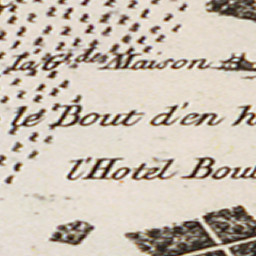 la G.de Maison
le Bout d'en h
l'Hotel Bou